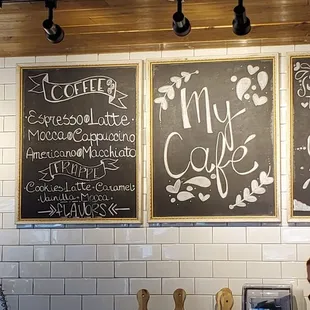 COFFEE
Espresso • Latte
Mocca • Cappuccino
Americano • Macchiato
FRAPPE
Cookies • Latte • Caramel
Vanilla • Mocca
FLAVORS
My
Café